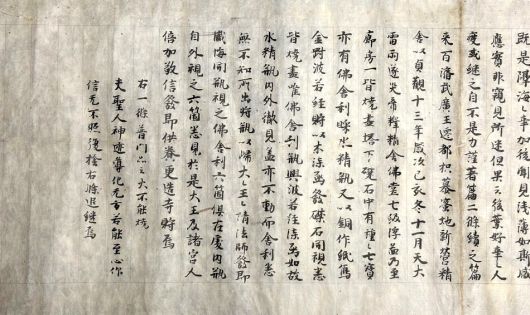 應寔非窺見所迷但果云後葉好事之人
或継之自不量力謹著篇二條續之篇
末百濟武廣王遷都枳慕蜜地新營精
舍以貞觀十三年歲次己亥冬十一月天大
雷雨遂災帝釋精舍佛堂七級浮圖乃至
廊房一皆燒盡塔下礎石中有種々七寶
亦有佛舍利睬水精瓶又以銅作紙寫
金剛波若經貯以木漆函發礎石開視悉
皆燒盡唯佛舍利瓶與波若經漆函如故
水精瓶內外徹見蓋亦不動而舍利悉
無不知所出將瓶以歸大王々請法師發即
懺悔開瓶視之佛舍利六箇俱在處內瓶
自外視之六箇悉見於是大王及諸宮人
倍加敬信發即供養更造寺貯焉
右一條普門品云火不能燒
夫聖人神迹導化無方若能至心仰
信无不照復捨右條追継焉